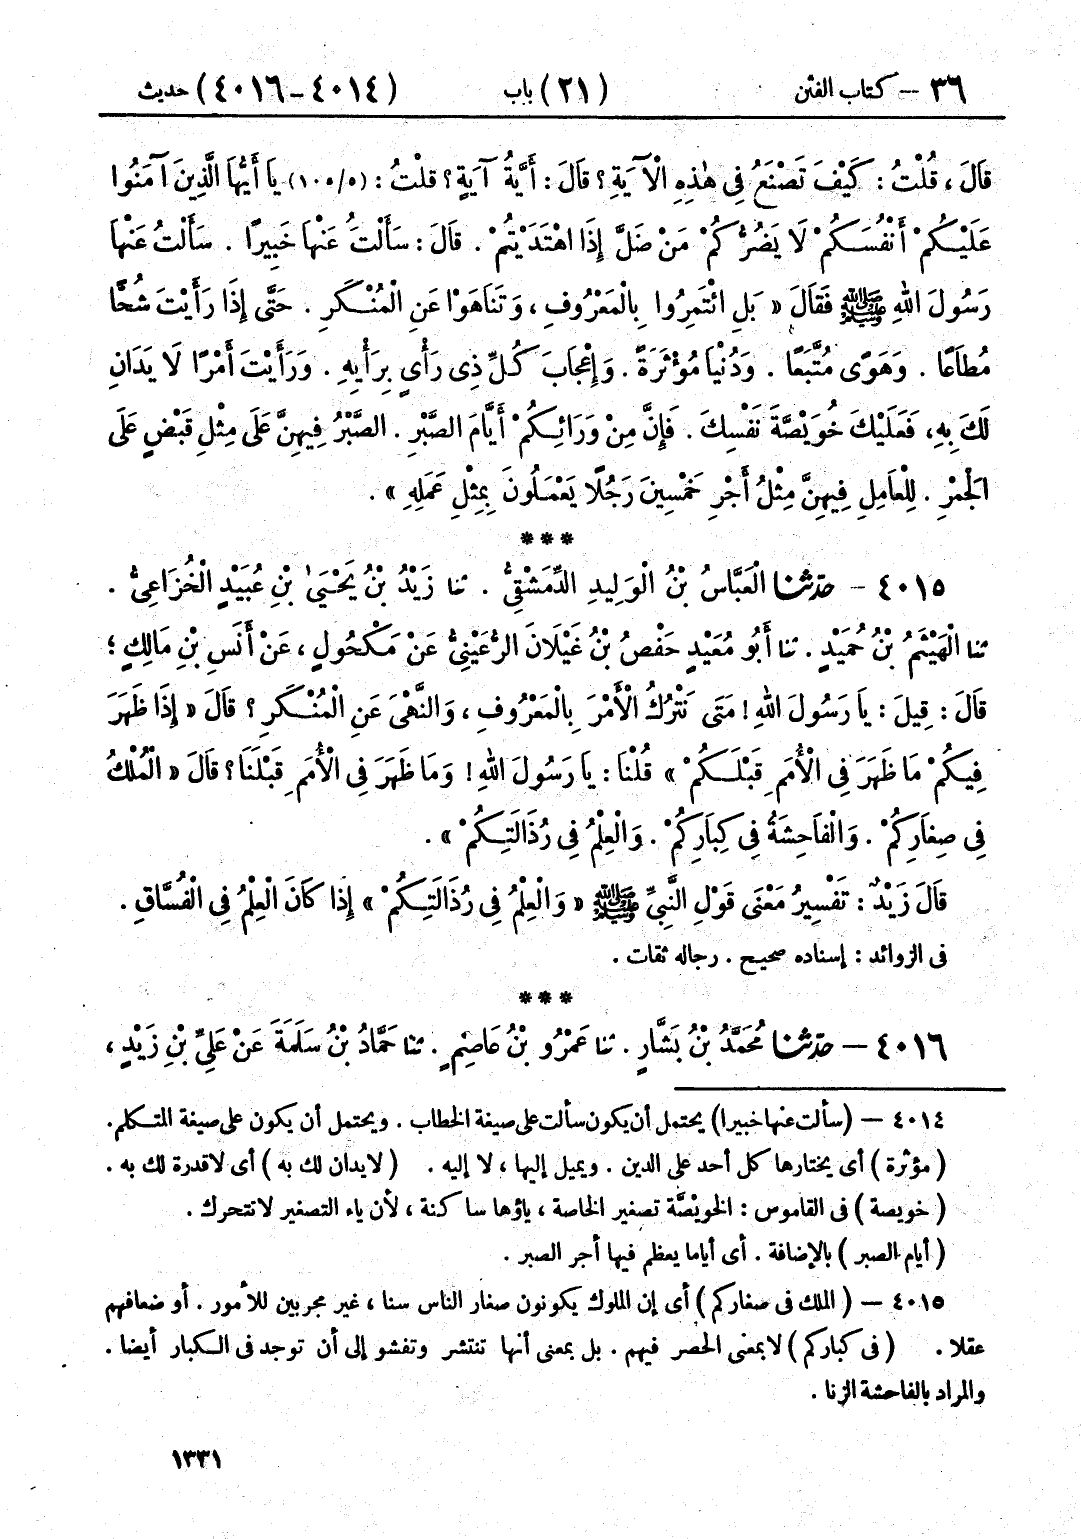 ٣٦ – كتاب الفتن (٢١) باب (٤٠١٤-٤٠١٦) حديث
قَالَ، قُلْتُ: كَيْفَ تَصْنَعُ فِى هٰذِهِ الْآيَةِ؟ قَالَ: أَيَّةُ آيَةٍ؟ قلْتُ: (١٠٥/٥) يَا أَيُّهَا الَّذِينَ آمَنُوا
عَلَيْكُمْ أَنْفُسَكُمْ لَا يَضُرُّكُمْ مَنْ ضَلَّ إِذَا اهْتَدَيْتُمْ . قَالَ: سَأَلْتَُ عَنْهَا خَبِيرًا . سَأَلْتُ عَنْهَا
رَسُولَ اللهِ ﷺ فَقَالَ « بَلِ ائْتَمِرُوا بِالْمَعْرُوفِ ، وَتَنَاهَوْا عَنِ الْمُنْكَرِ . حَتَّى إِذَا رَأَيْتَ شُحًّا
مُطَاعًا . وَهَوًى مُتَّبَعًا . وَدُنْيَا مُؤْثَرَةً . وَإِعْجَابَ كُلِّ ذِى رَأْيٍ بِرَأْيِهِ . وَرَأَيْتَ أَمْرًا لَا يَدَانِ
لَكَ بِهِ، فَعَلَيْكَ خُوَيْصَّةَ نَفْسِكَ . فَإِنَّ مِنْ وَرَائِكُمْ أَيَّامَ الصَّبْرِ . الصَّبْرُ فِيهِنَّ عَلَى مِثْلِ قَبْضٍ عَلَى
الْجَمْرِ . لِلْعَامِلِ فِيهِنَّ مِثْلُ أَجْرِ خَمْسِينَ رَجُلًا يَعْمَلُونَ بِمِثْلِ عَمَلِهِ » .
***
٤٠١٥ – حدّثنا الْعَبَّاسُ بْنُ الْوَلِيدِ الدِّمَشْقِىُّ . ثنا زَيْدُ بْنُ يَحْيَىٰ بْنِ عُبَيْدٍ الْخُزَاعِىُّ .
ثنا الْهَيْثَمُ بْنُ حُمَيْدٍ . ثنا أَبُو مُعَيْدٍ حَفْصُ بْنُ غَيْلَانَ الرُّعَيْنِىُّ عَنْ مَكْحُولٍ ، عَنْ أَنَسِ بْنِ مَالِكٍ ؛
قَالَ : قِيلَ : يَا رَسُولَ اللهِ ! مَتَى نَتْرُكُ الْأَمْرَ بِالْمَعْرُوفِ ، وَالنَّهْىَ عَنِ الْمُنْكَرِ ؟ قَالَ « إِذَا ظَهَرَ
فِيكُمْ مَا ظَهَرَ فِى الْأُمَمِ قَبْلَكُمْ » قُلْنَا : يَا رَسُولَ اللهِ ! وَمَا ظَهَرَ فِى الْأُمَمِ قَبْلَنَا ؟ قَالَ « الْمُلْكُ
فِى صِغَارِكُمْ . وَالْفَاحِشَةُ فِى كِبَارِكُمْ . وَالْعِلْمُ فِى رُذَالَتِكُمْ » .
قَالَ زَيْدٌ : تَفْسِيرُ مَعْنَى قَوْلِ النَّبِىِّ ﷺ « وَالْعِلْمُ فِى رُذَالَتِكُمْ » إِذَا كَانَ الْعِلْمُ فِى الْفُسَّاقِ .
فى الزوائد : إسناده صحيح . رجاله ثقات .
***
٤٠١٦ – حدّثنا مُحَمَّدُ بْنُ بَشَّارٍ . ثنا عَمْرُو بْنُ عَاصِمٍ . ثنا حَمَّادُ بْنُ سَلَمَةَ عَنْ عَلِىِّ بْنِ زَيْدٍ ،
٤٠١٤ – (سألت عنها خبيرا) يحتمل أن يكون سألت على صيغة الخطاب . ويحتمل أن يكون على صيغة المتكلم.
(مؤثرة) أى يختارها كل أحد على الدين . ويميل إليها ، لا إليه . (لا يدان لك به) أى لا قدرة لك به .
(خويصة) فى القاموس : الخويْصَّة تصغير الخاصة ، ياؤها ساكنة ، لأن ياء التصغير لا تتحرك .
(أيام الصبر) بالإضافة . أى أياما يعظم فيها أجر الصبر .
٤٠١٥ – (الملك فى صغاركم) أى إن الملوك يكونون صغار الناس سنا ، غير مجربين للأمور . أو ضعافهم
عقلا . (فى كباركم) لا بمعنى الحصر فيهم . بل بمعنى أنها تنتشر وتفشو إلى أن توجد فى الكبار أيضا .
والمراد بالفاحشة الزنا .
١٣٣١